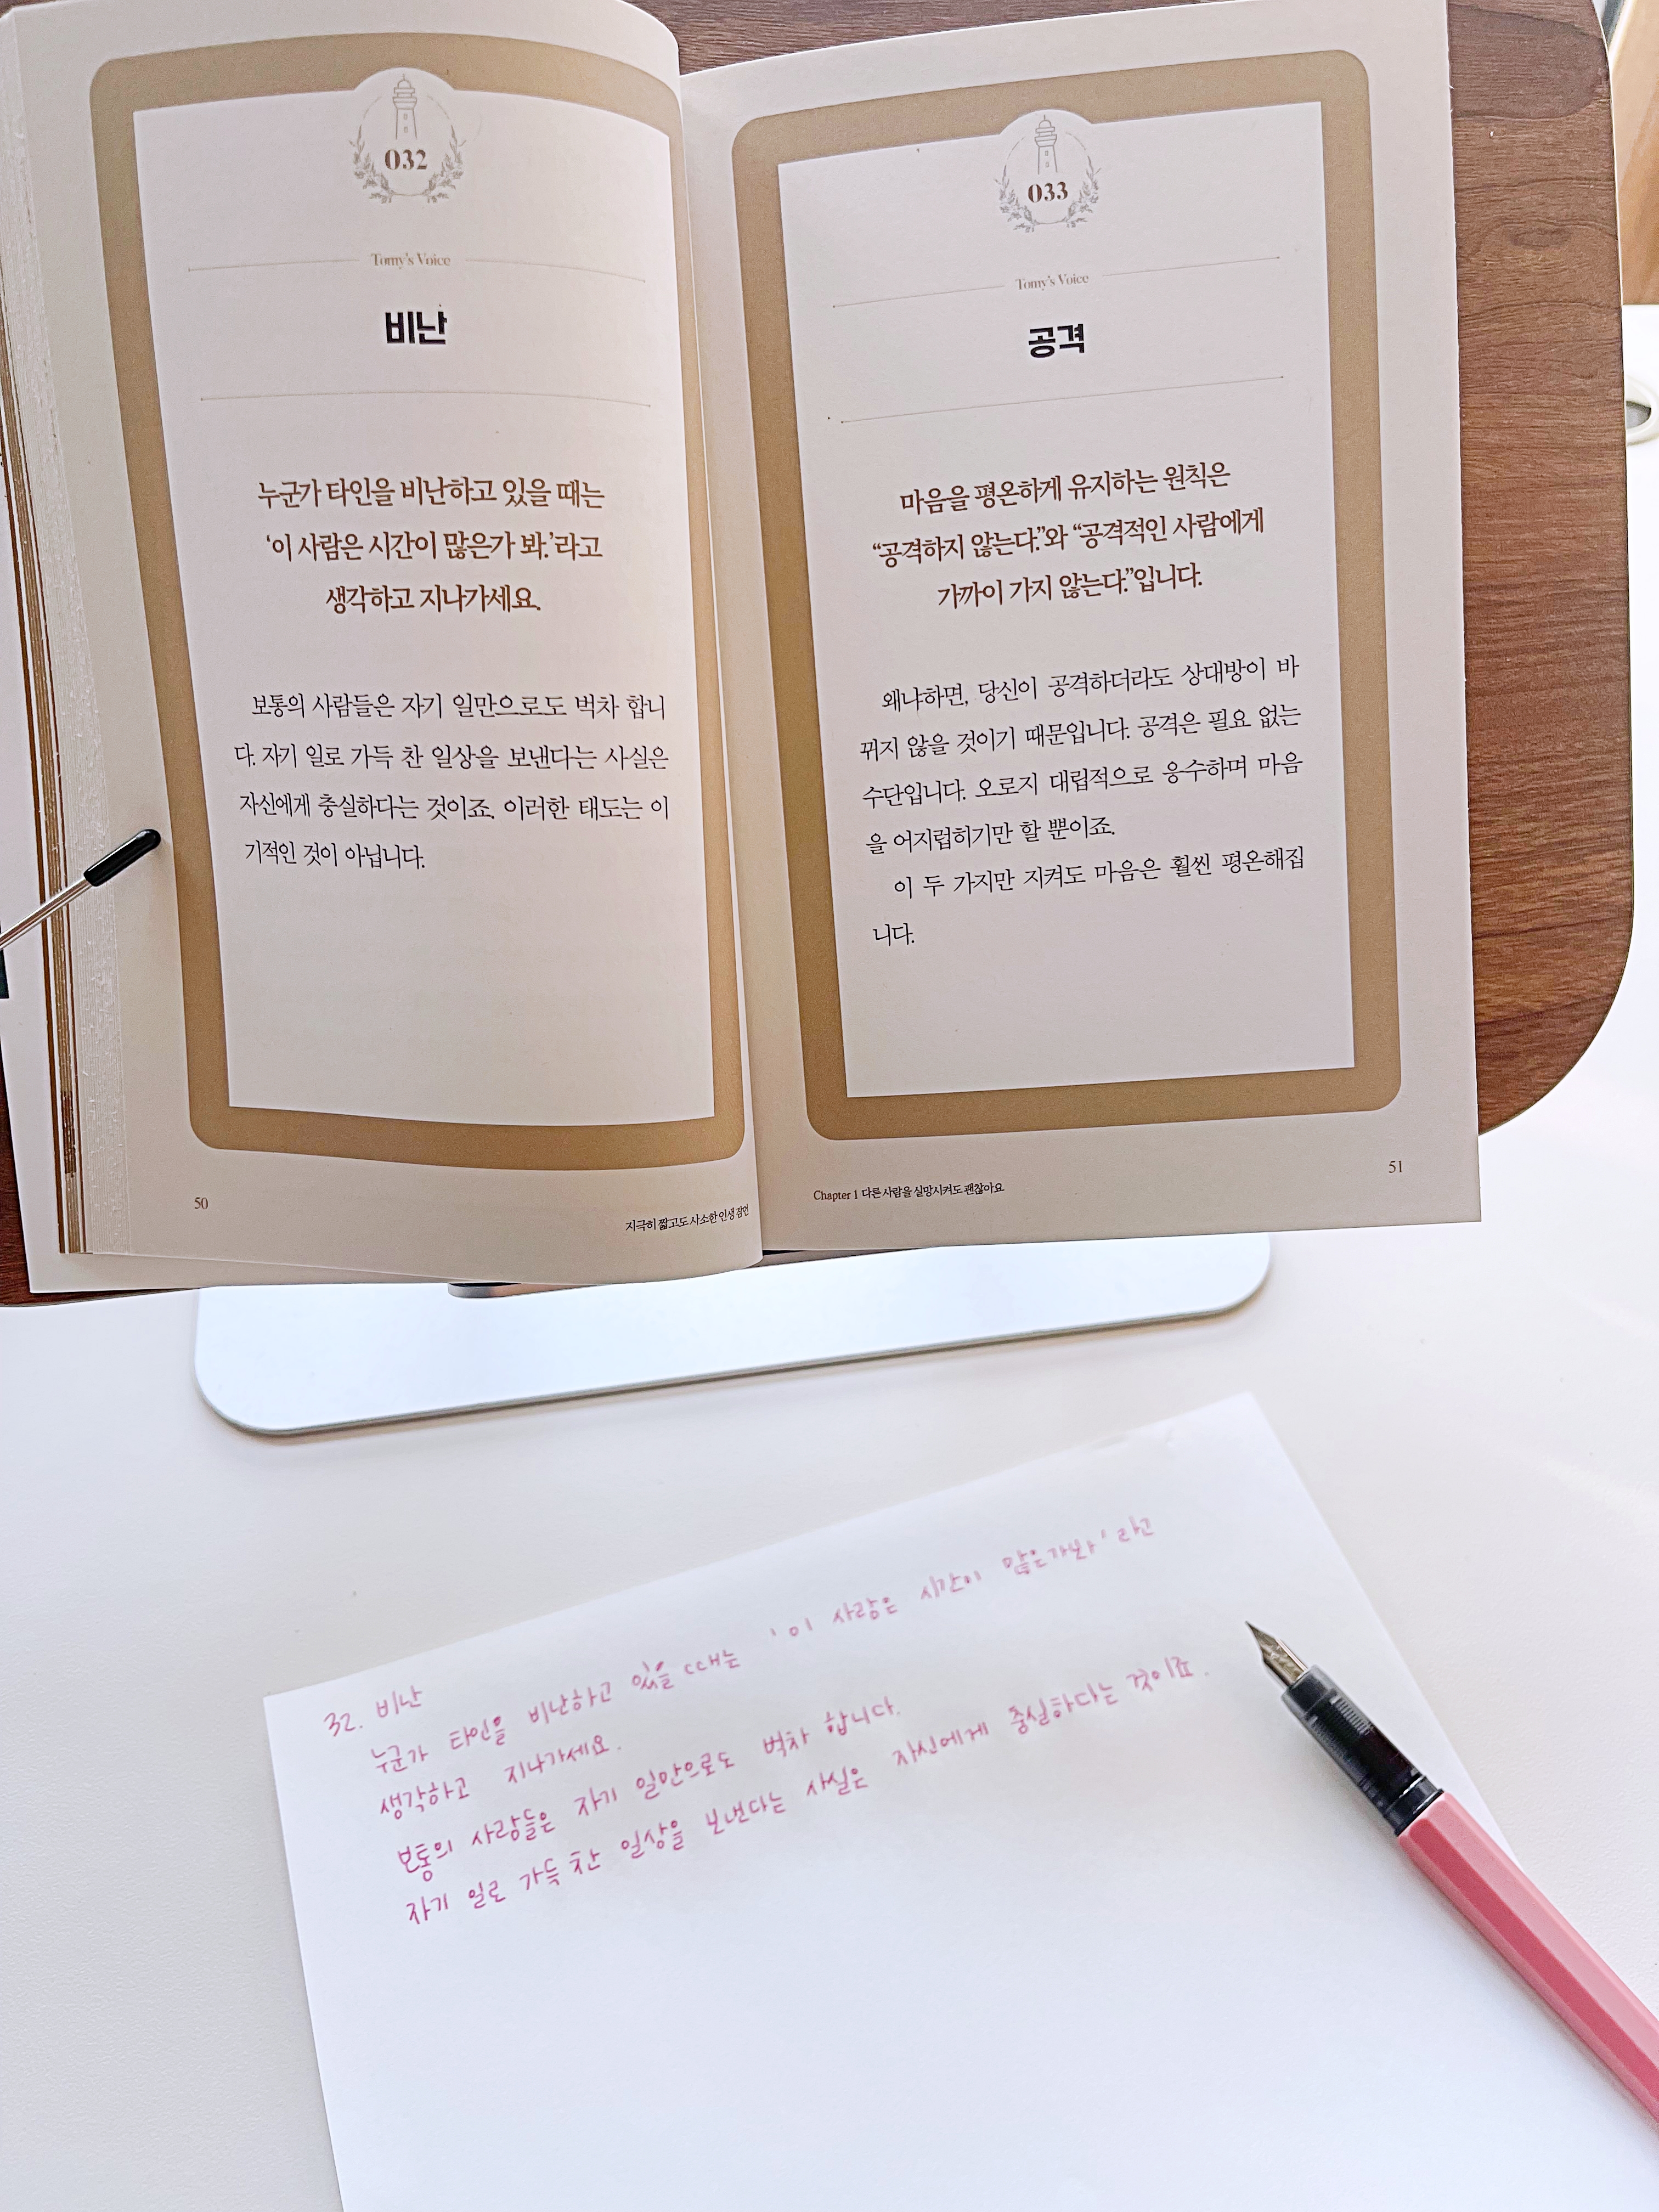 032
Tomy's Voice
비난
누군가 타인을 비난하고 있을 때는
‘이 사람은 시간이 많은가 봐.’라고
생각하고 지나가세요.
보통의 사람들은 자기 일만으로도 벅차 합니
다. 자기 일로 가득 찬 일상을 보낸다는 사실은
자신에게 충실하다는 것이죠. 이러한 태도는 이
기적인 것이 아닙니다.
50
지극히 짧고도 사소한 인생 잠언
033
Tomy's Voice
공격
마음을 평온하게 유지하는 원칙은
“공격하지 않는다.”와 “공격적인 사람에게
가까이 가지 않는다.”입니다.
왜냐하면, 당신이 공격하더라도 상대방이 바
뀌지 않을 것이기 때문입니다. 공격은 필요 없는
수단입니다. 오로지 대립적으로 응수하며 마음
을 어지럽히기만 할 뿐이죠.
이 두 가지만 지켜도 마음은 훨씬 평온해집
니다.
Chapter 1 다른 사람을 실망시켜도 괜찮아요
51
32. 비난
누군가 타인을 비난하고 있을 때는 '이 사람은 시간이 많은가봐' 라고
생각하고 지나가세요.
보통의 사람들은 자기 일만으로도 벅차 합니다.
자기 일로 가득 찬 일상을 보낸다는 사실은 자신에게 충실하다는 것이죠.